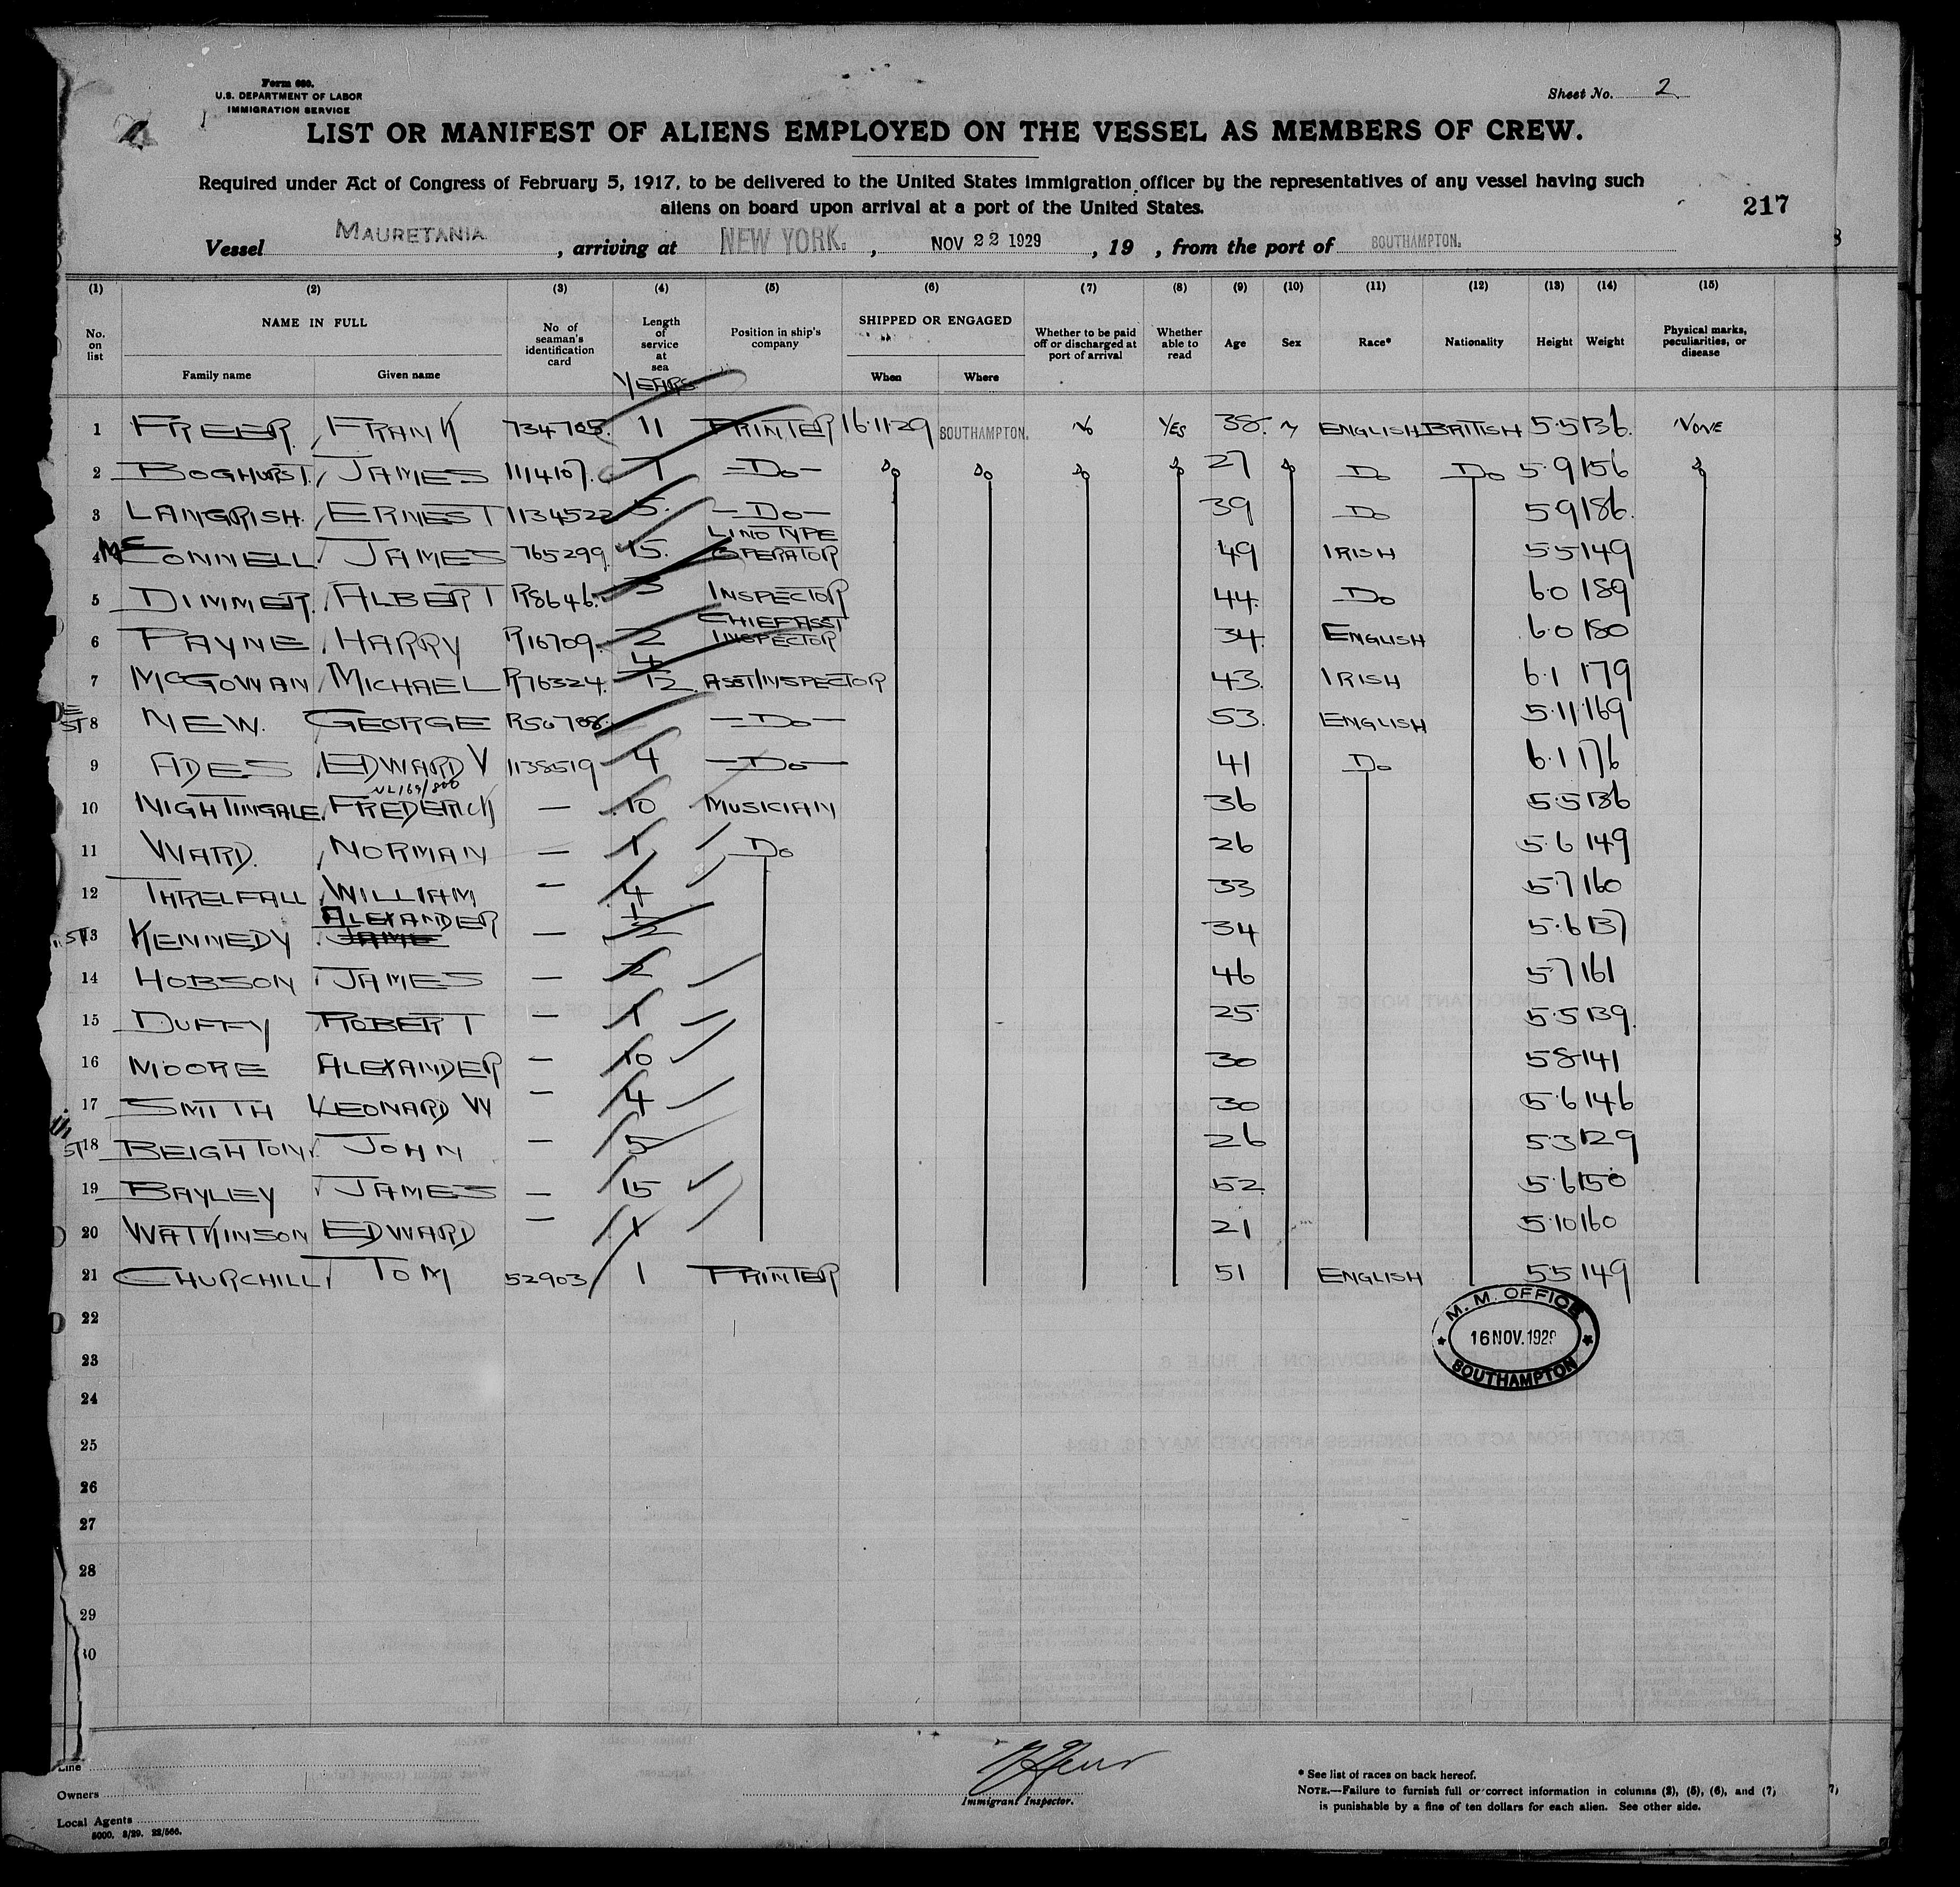 Form 680.
U.S. DEPARTMENT OF LABOR
IMMIGRATION SERVICE
Sheet No. 2
LIST OR MANIFEST OF ALIENS EMPLOYED ON THE VESSEL AS MEMBERS OF CREW.
Required under Act of Congress of February 5, 1917, to be delivered to the United States immigration officer by the representatives of any vessel having such
aliens on board upon arrival at a port of the United States.
217
Vessel MAURETANIA, arriving at NEW YORK., NOV 22 1929, 19 , from the port of SOUTHAMPTON.
(1) (2) (3) (4) (5) (6) (7) (8) (9) (10) (11) (12) (13) (14) (15)
No. on list NAME IN FULL Family name Given name No. of seaman's identification card Length of service at sea YEARS Position in ship's company SHIPPED OR ENGAGED When Where Whether to be paid off or discharged at port of arrival Whether able to read Age Sex Race* Nationality Height Weight Physical marks, peculiarities, or disease
1 FREER. FRANK 734705. 11 PRINTER 16.11.29 SOUTHAMPTON. No YES 38. M ENGLISH BRITISH 5.5 136. NONE
2 BOGHURST. JAMES 1114107. 1 -Do- Do Do Do Do 27 Do Do Do 5.9 156 Do
3 LANGRISH. ERNEST 1134522 5. -Do- 39 Do 5.9 186.
4 McCONNELL. JAMES 765299. 15. LINOTYPE OPERATOR 49 IRISH 5.5 149
5 DIMMER. ALBERT R8646. 3 INSPECTOR 44. Do 6.0 189
6 PAYNE HARRY R16709. 2 CHIEF ASST INSPECTOR 34. ENGLISH 6.0 180
7 McGOWAN MICHAEL R76324. 4/12 ASST INSPECTOR 43. IRISH 6.1 179
8 NEW. GEORGE -Do- 53. ENGLISH 5.11 169
9 ADES EDWARD V 1138519 4 -Do- 41 Do 6.1 176
10 NIGHTINGALE. FREDERICK — 10 MUSICIAN 36 5.5 136
11 WARD. NORMAN — 1 Do 26 5.6 149
12 THRELFALL WILLIAM — 4 33 5.7 160
13 KENNEDY ALEXANDER JAME — 34 5.6 137
14 HOBSON JAMES — 2 46 5.7 161
15 DUFFY ROBERT — 1 25. 5.5 139.
16 MOORE ALEXANDER — 10 30 5.8 141
17 SMITH LEONARD W — 4 30 5.6 146
18 BEIGHTON. JOHN — 5 26 5.3 129
19 BAYLEY JAMES — 15 52 5.6 150
20 WATKINSON EDWARD — 1 21 5.10 160
21 CHURCHILL TOM 52903 1 PRINTER 51 ENGLISH 5.5 149
22
M. M. OFFICE
16 NOV. 1929
SOUTHAMPTON
23
24
25
26
27
28
29
30
Line
Owners
Local Agents
5000. 3/29. 22/566.
Immigrant Inspector.
* See list of races on back hereof.
NOTE.—Failure to furnish full or correct information in columns (2), (5), (6), and (7)
is punishable by a fine of ten dollars for each alien. See other side.